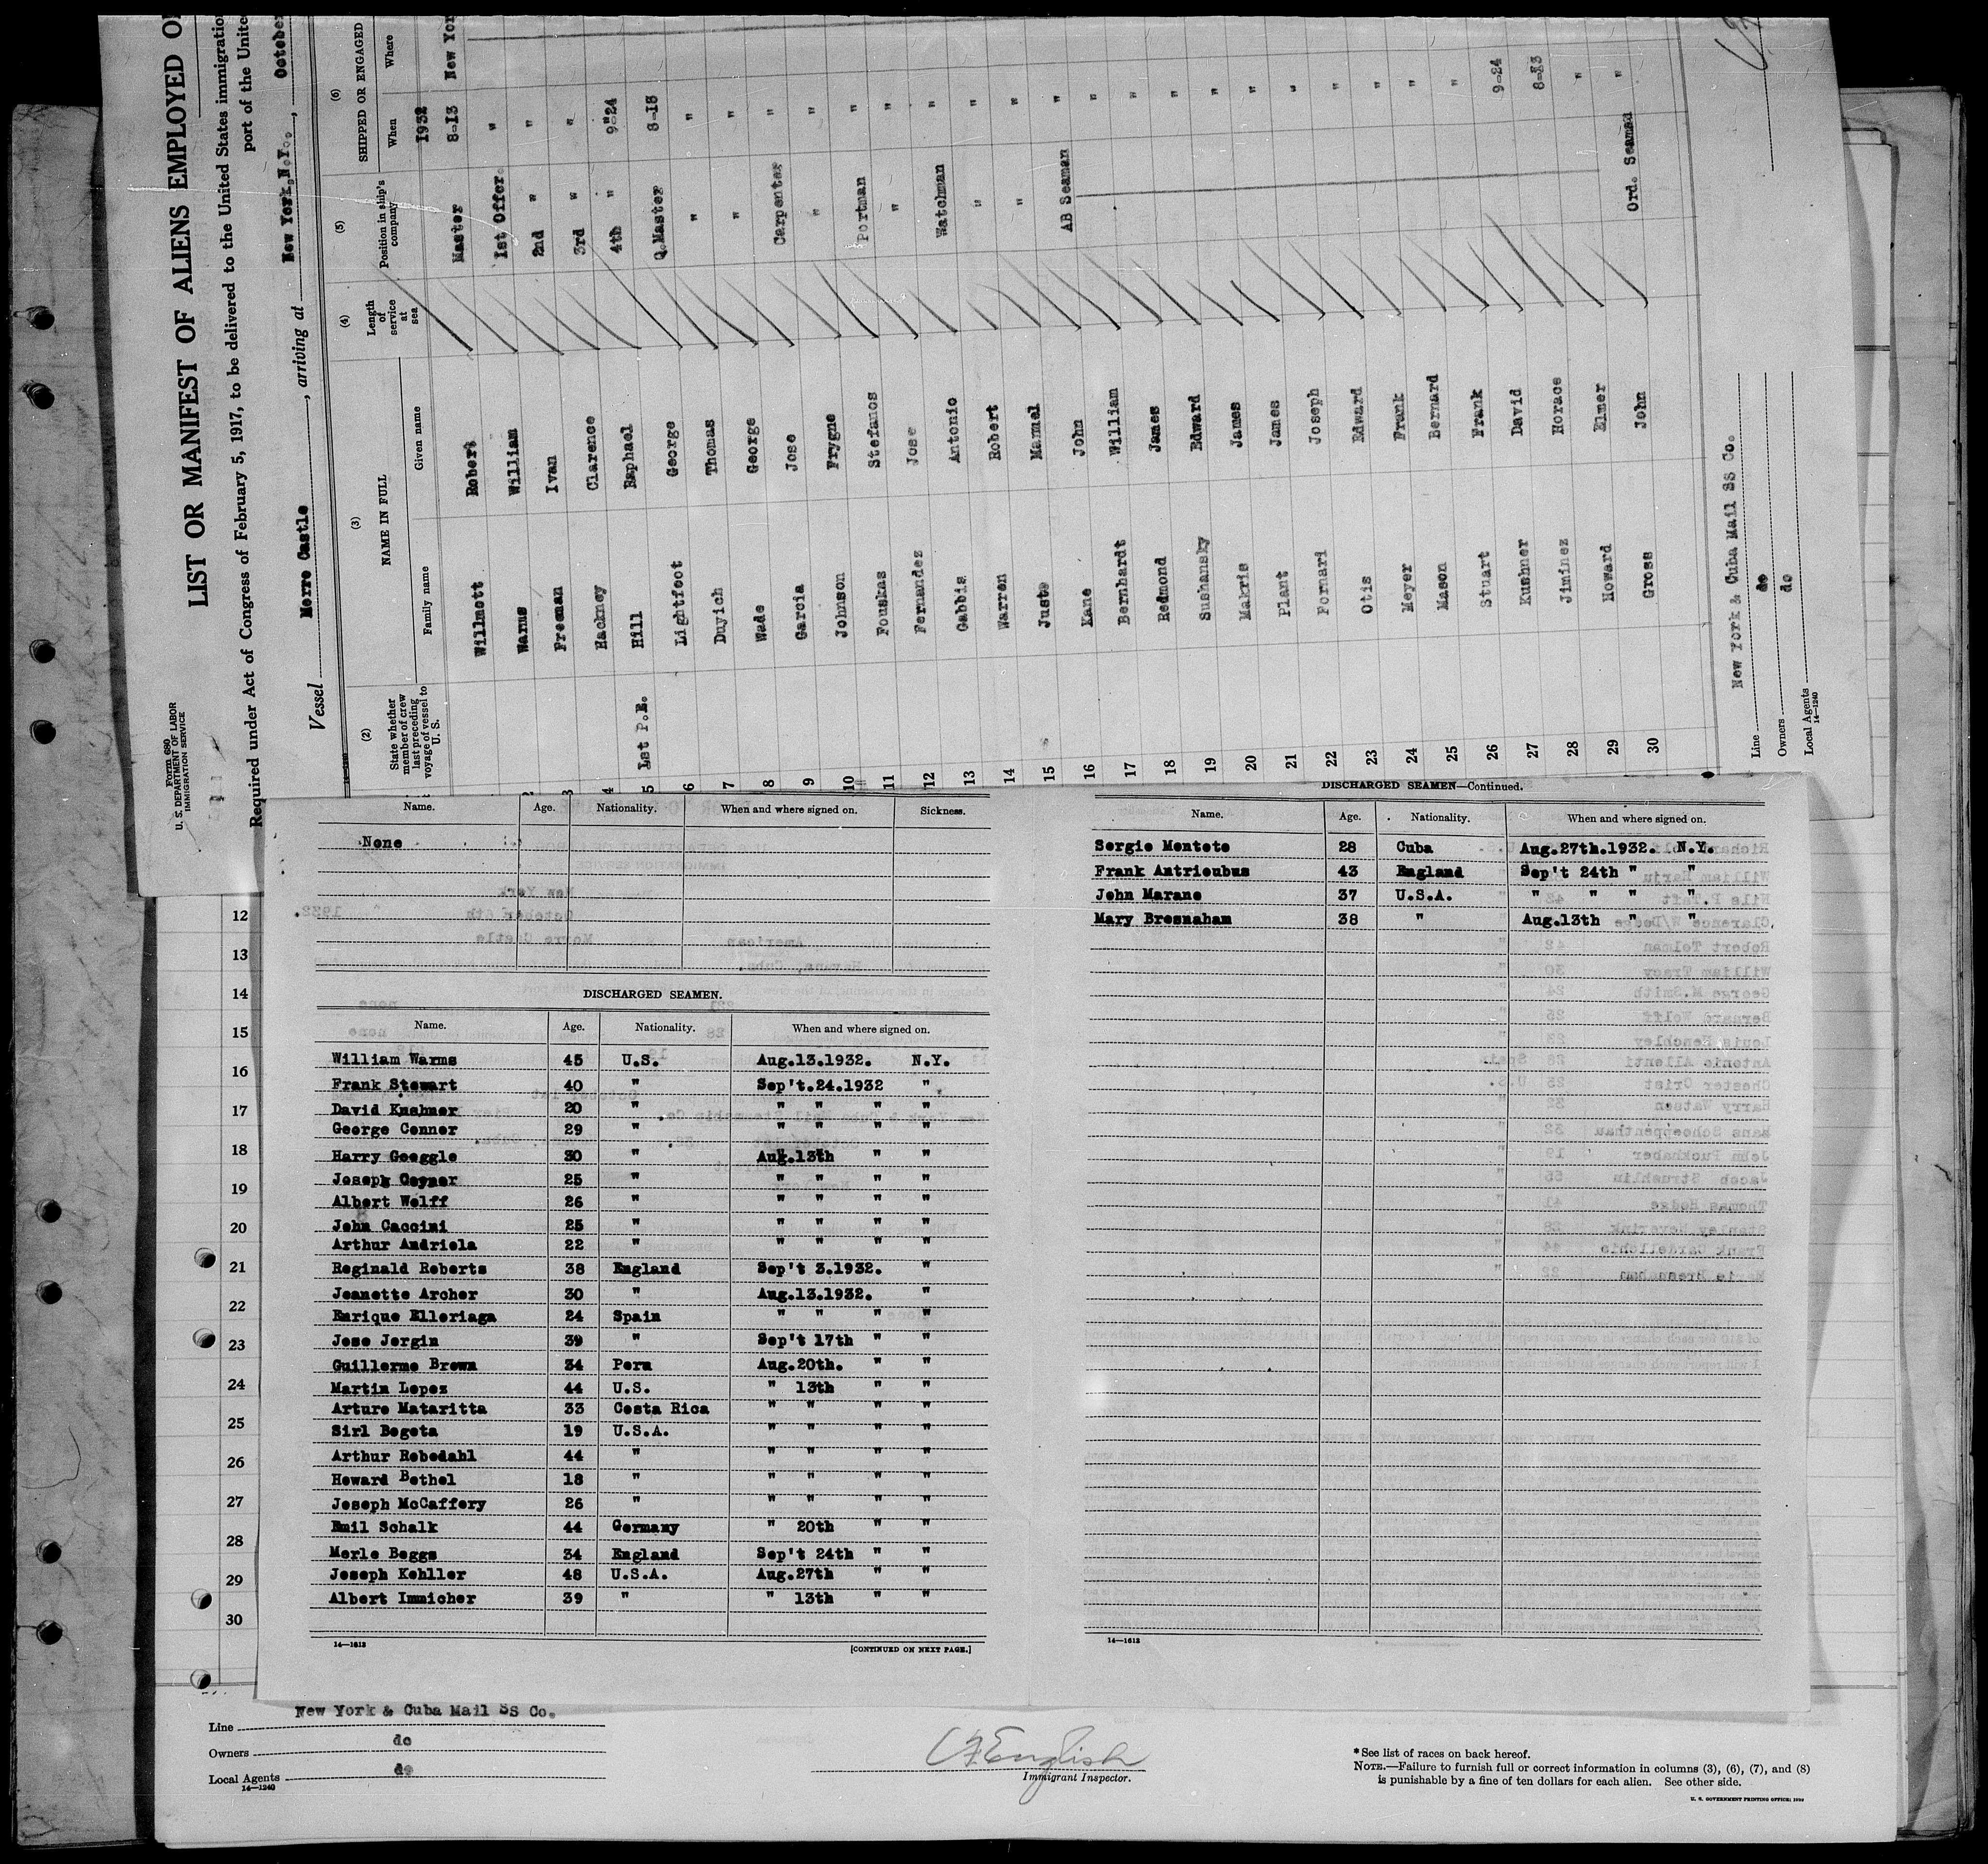 Form 680
U. S. DEPARTMENT OF LABOR
IMMIGRATION SERVICE
LIST OR MANIFEST OF ALIENS EMPLOYED
Required under Act of Congress of February 5, 1917, to be delivered to the United States immigration
port of the
Vessel Morro Castle, arriving at New York,N.Y., October
(2) (3) (4) (5) (6)
State whether member of crew last preceding voyage of vessel to U. S.
NAME IN FULL
Family name Given name
Length of service at sea
Position in ship's company
SHIPPED OR ENGAGED
When Where
1932
Willmott Robert Master 8-13 New
Warms William 1st Offer. "
Freeman Ivan 2nd " "
Hackney Clarence 3rd " "
Hill Raphael 4th " 9-24
5 Lst P.E. Lightfoot George Q.Master 8-13
6 Duyich Thomas " "
7 Wade George " "
8 Garcia Jose Carpenter "
9 Johnson Frygne " "
10 Fouskas Stefanos Portman "
11 Fernandez Jose " "
12 Gabbis Antonio Watchman "
13 Warren Robert " "
14 Juste Manuel " "
15 Kane John AB Seaman "
16 Bernhardt William "
17 Redmond James "
18 Sushansky Edward "
19 Makris James "
20 Plant James "
21 Fornari Joseph "
22 Otis Edward "
23 Meyer Frank "
24 Mason Bernard "
25 Stuart Frank 9-24
26 Kushner David 8-13
27 Jiminez Horace "
28 Howard Elmer Ord. Seaman "
29 Gross John
30
Line New York & Cuba Mail SS Co.
Owners do
Local Agents do
14-1240
Name. Age. Nationality. When and where signed on. Sickness.
None
DISCHARGED SEAMEN.
Name. Age. Nationality. When and where signed on.
William Warms 45 U.S. Aug.13.1932. N.Y.
Frank Stewart 40 " Sep't.24.1932 "
David Kushner 20 " " " " "
George Conner 29 " " " " "
Harry Geoggle 30 " Aug.13th " "
Joseph Coyner 25 " " " " "
Albert Wolff 26 " " " " "
John Caccini 25 " " " " "
Arthur Andriola 22 " " " " "
Reginald Roberts 38 England Sep't 3.1932. "
Jeanette Archer 30 " Aug.13.1932. "
Enrique Elleriaga 24 Spain " " " "
Jose Jorgin 39 " Sep't 17th " "
Guillermo Brown 34 Peru Aug.20th. " "
Martin Lopez 44 U.S. " 13th " "
Arturo Mataritta 33 Costa Rica " " " "
Sirl Bogota 19 U.S.A. " " " "
Arthur Robedahl 44 " " " " "
Howard Bethel 18 " " " " "
Joseph McCaffery 26 " " " " "
Emil Schalk 44 Germany " 20th " "
Merle Beggs 34 England Sep't 24th " "
Joseph Kohller 48 U.S.A. Aug.27th " "
Albert Immicher 39 " " 13th " "
14—1613
[CONTINUED ON NEXT PAGE.]
DISCHARGED SEAMEN—Continued.
Name. Age. Nationality. When and where signed on.
Sergio Montoto 28 Cuba Aug.27th.1932. N.Y.
Frank Antrioubus 43 England Sep't 24th " "
John Marane 37 U.S.A. " " " "
Mary Bresnaham 38 " Aug.13th " "
14—1613
12
13
14
15
16
17
18
19
20
21
22
23
24
25
26
27
28
29
30
Line New York & Cuba Mail SS Co.
Owners do
Local Agents do
14—1240
English
Immigrant Inspector.
*See list of races on back hereof.
NOTE.—Failure to furnish full or correct information in columns (3), (6), (7), and (8)
is punishable by a fine of ten dollars for each alien. See other side.
U. S. GOVERNMENT PRINTING OFFICE: 1930